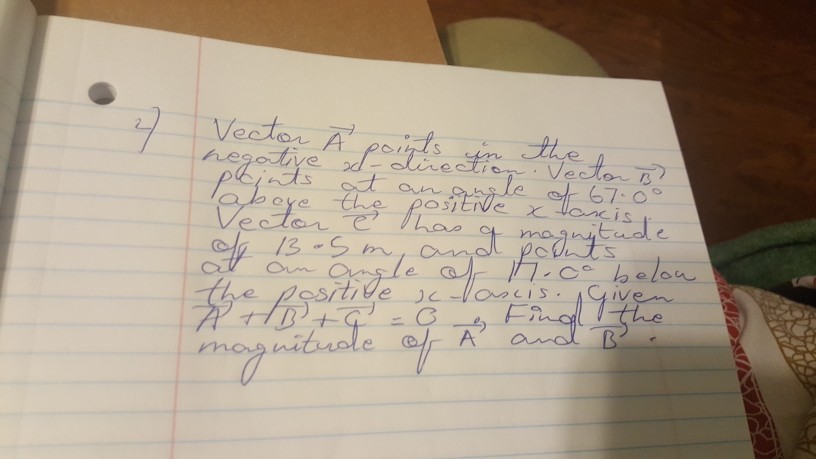 2) Vector A⃗ points in the
negative x-direction. Vector B⃗
points at an angle of 67.0°
above the positive x-axis.
Vector C⃗ has a magnitude
of 13.5 m, and points
at an angle of 17.0° below
the positive x-axis. Given
A⃗ + B⃗ + C⃗ = 0, Find the
magnitude of A⃗, and B⃗.